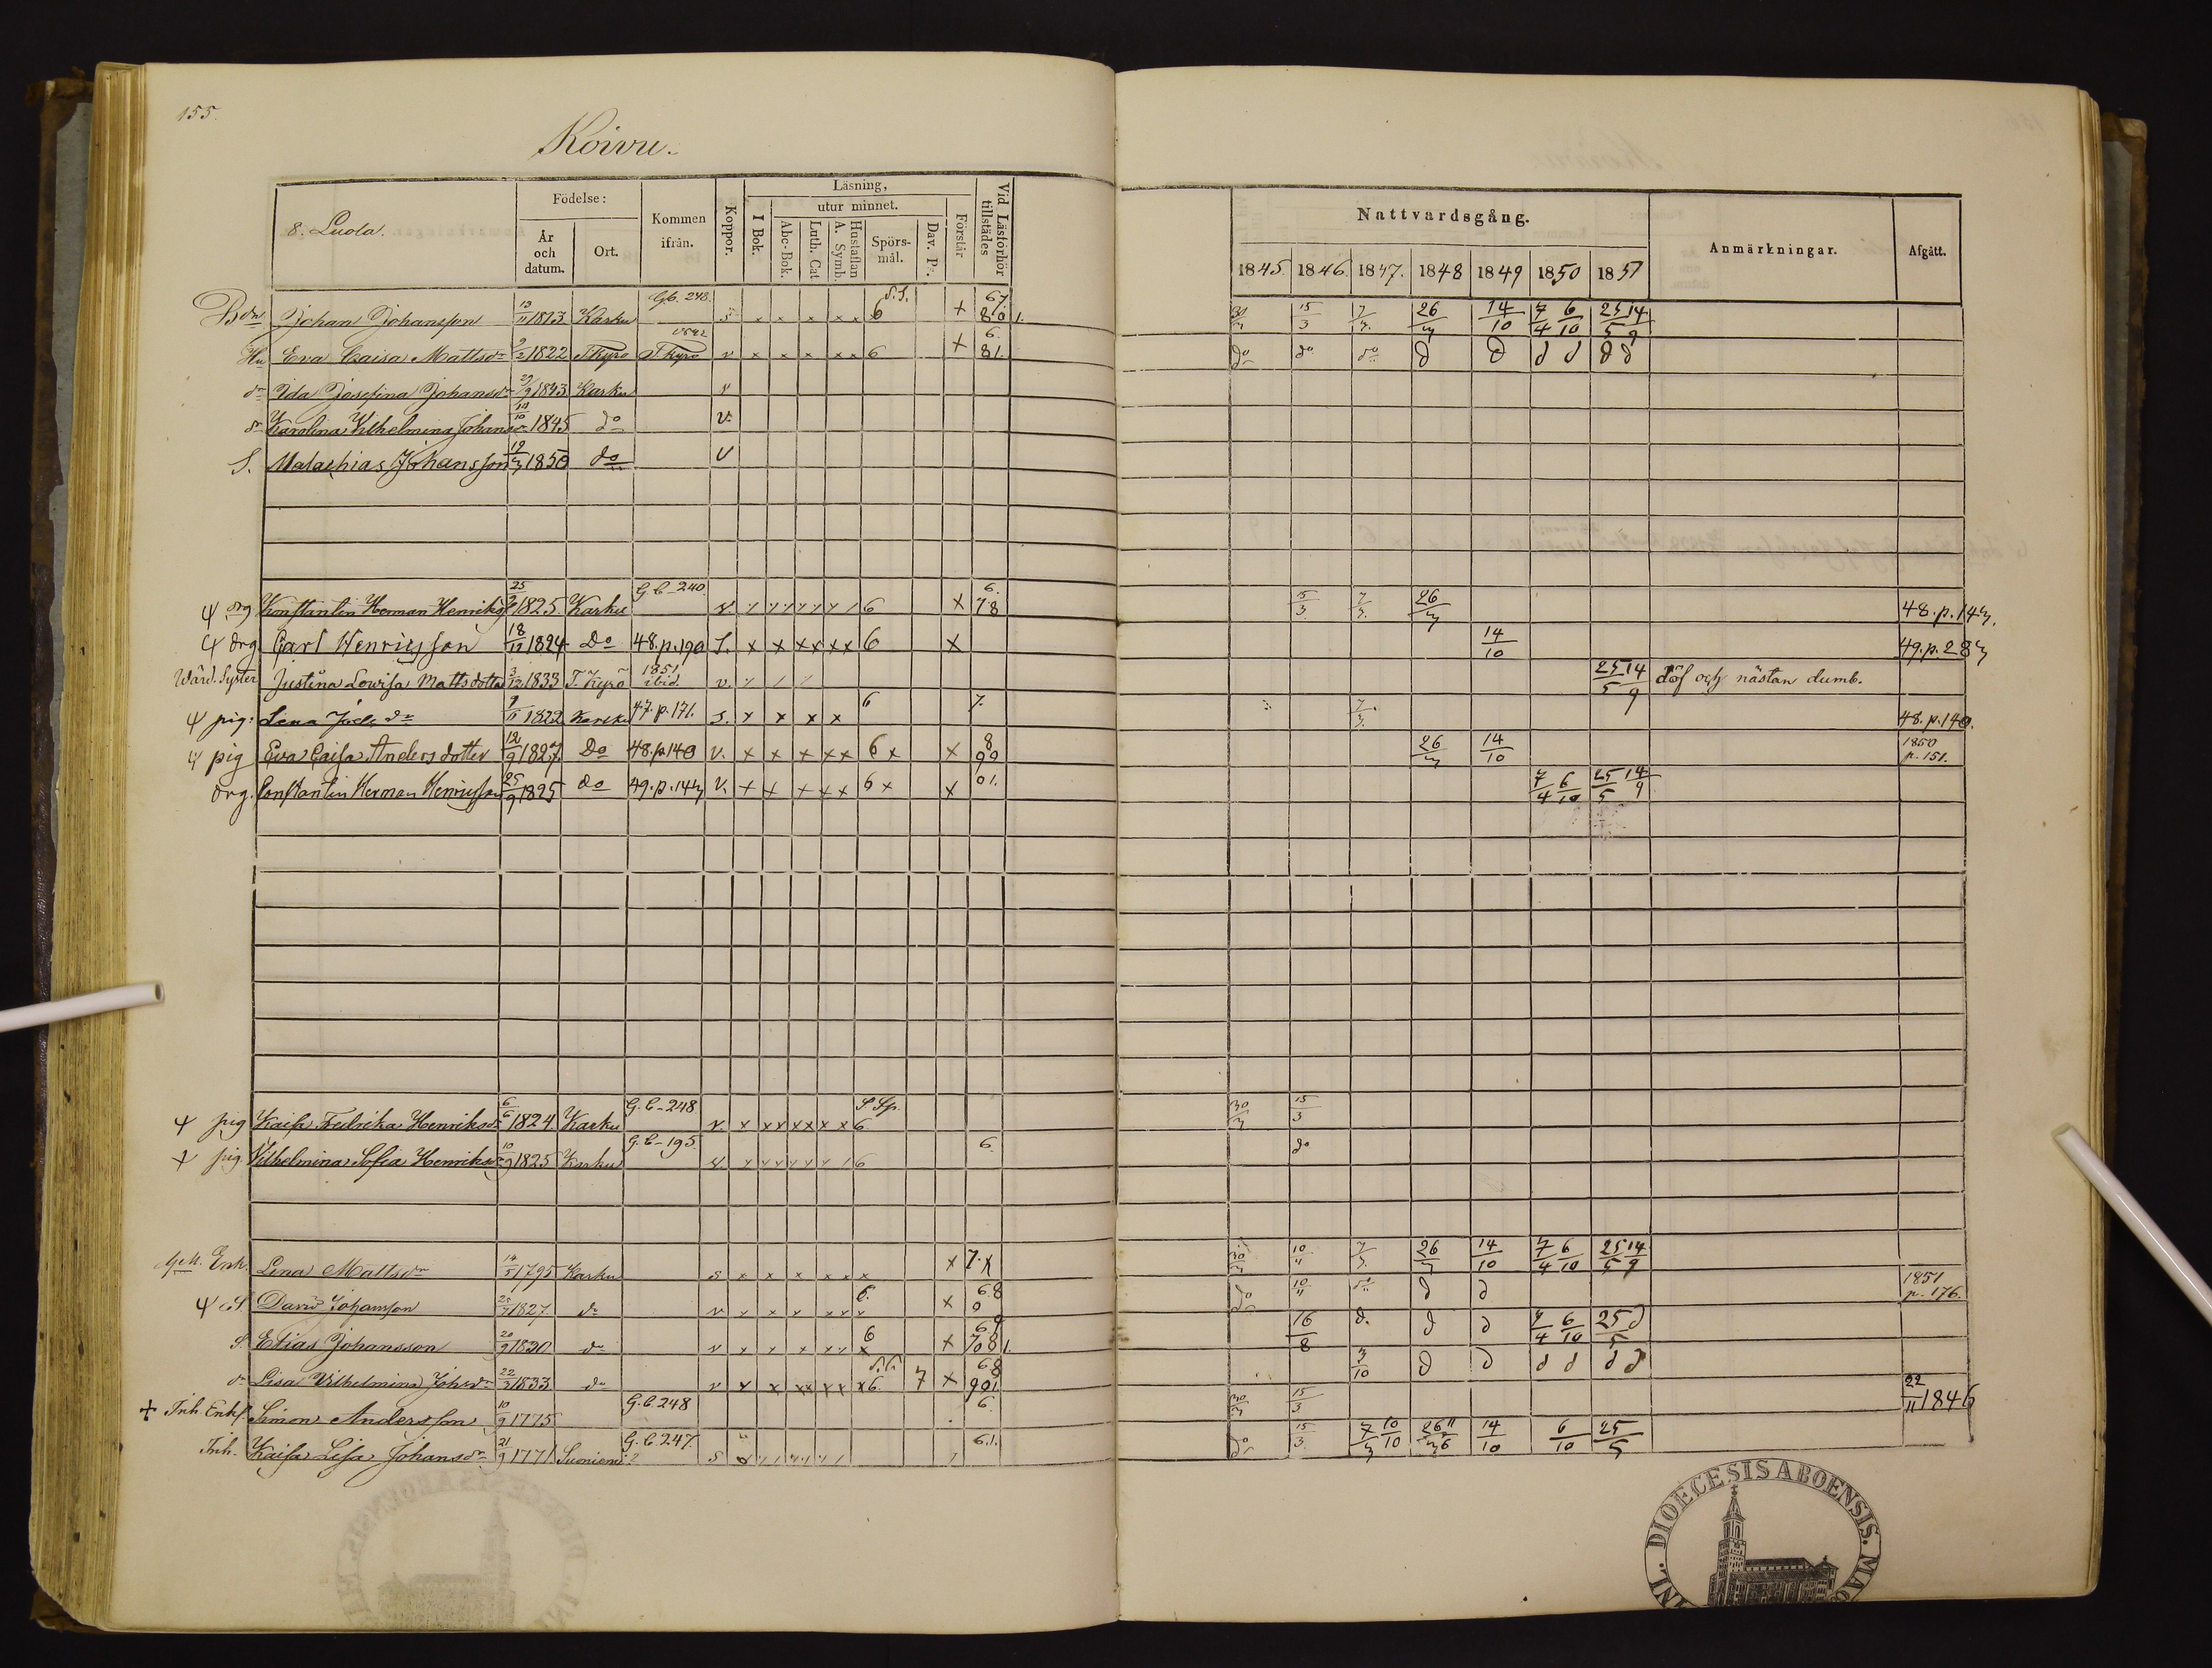 155.
Koivu.
8. Luola.
Födelse:
År och datum.
Ort.
Kommen ifrån.
Koppor.
Läsning,
I Bok.
utur minnet.
Abc-Bok.
Luth. Cat.
Hustaflan A. Symb.
Spörs-mål.
Dav. Ps.
Förstår
Vid Läsförhör tillstädes
Nattvardsgång.
1845. 1846. 1847. 1848 1849 1850 1851
Anmärkningar.
Afgått.
Bdn Johan Johansson 13/11 1813 Karku G.b. 248. S.S. 6 15/3 26 14/10 7/4 6/10 25/5 14/9
Hu Eva Caisa Mattsdr 9/2 1822 T.Kyro T.Kyro v 6 do do do d d d d d d
dr Ida Josefina Johansdr 29/9 1843 Karku v
dr Karolina Vilhelmina Johansdr 14/10 1845 do v.
S. Malachias Johansson 19/3 1850 do v
drg Konstantin Herman Henriks 25/9 1825 Karku G b 240. v. 6 15/3 7/3 26/3 48. p. 143.
drg. Carl Henricsson 18/12 1824 Do 48. p. 190 S. 6 14/10 49. p. 283
Wärd. Syster Justina Lovisa Mattsdotter 3/12 1833 T. Kyrö 1851 ibid. v. 25/5 14/9 döf och nästan dumb.
pig: Lena Joels dr 1822 Karku 47. p. 171. S. 6 7. 7/3. 48. p. 140.
pig Eva Caisa Andersdotter 12/9 1827. Do 48. p. 140 v. 6 26/3 14/10 1850 p. 151.
drg. Constantin Herman Henricsson 25/9 1825 do 49. p. 143 v. 6 01. 7/4 6/10 25/5 14/9
pig Kaisa Fredrika Henriksdr 6/6 1824 Karku G. b - 248 v. S Sp. 6 30/3 15/3
pig. Vilhelmina Sofia Henriksdr 10/9 1825 Karku G. b - 195. v. 6 6. do
Enk. Lena Mattsdr 14/5 1795 Karku s 7. 30/3 10/11 7/3. 26/3 14/10 7/4 6/10 25/5 14/9
S. David Johansson 25/7 1827 do v 6. 6.8 9 do 10/11 do d d 1851 p. 176.
S. Elias Johansson 20/9 1830 do v 6 16/8 d. d d 7/4 6/10 25/5 d
dr Lisa Vilhelmina Johsdr 22/3 1833 do v 6 7 68 901. 3/10 d d d d d d
Inh. Enkl. Simon Andersson 10/9 1775 G. b. 248 6. 30/3 15/3 22/11 1846
Inh. Kaisa Lisa Johansdr 21/9 1771 Suoniemi? G. b. 247. s 6.1. do 15/3. 7/3 10/10 26/3 11/6 14/10 6/10 25/5
DIOECESIS ABOENSIS. MAG
INI.